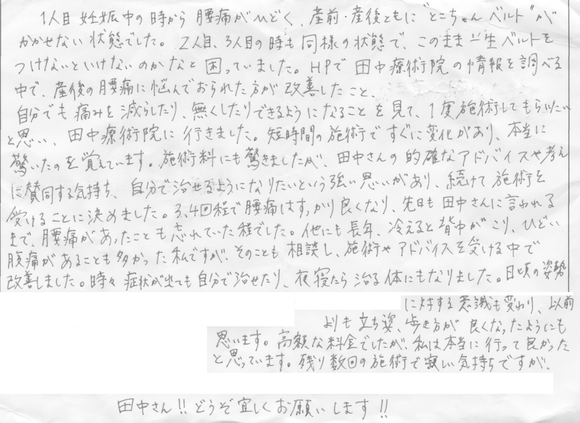 1人目妊娠中の時から腰痛がひどく、産前・産後ともに"とこちゃんベルト"が
かかせない状態でした。2人目、3人目の時も同様の状態で、このまま一生ベルトを
つけないといけないのかなと困っていました。HPで田中療術院の情報を調べる
中で、産後の腰痛に悩んでおられた方が改善したこと、
自分でも痛みを減らしたり、無くしたりできるようになることを見て、1度施術してもらいたい
と思い、田中療術院に行きました。短時間の施術ですぐに変化があり、本当に
驚いたのを覚えています。施術料にも驚きましたが、田中さんの的確なアドバイスや考え
に賛同する気持ち、自分で治せるようになりたいという強い思いがあり、続けて施術を
受けることに決めました。3、4回程で腰痛はすっかり良くなり、先日も田中さんに言われる
まで、腰痛があったことも忘れていた程でした。他にも長年、冷えると背中がこり、ひどい
腹痛があることも多かった私ですが、そのことも相談し、施術やアドバイスを受ける中で
改善しました。時々症状が出ても自分で治せたり、夜寝たら治る体にもなりました。日頃の姿勢
に対する意識も変わり、以前
よりも立ち姿、歩き方が良くなったようにも
思います。高額な料金でしたが、私は本当に行って良かった
と思っています。残り数回の施術で寂しい気持ちですが、
田中さん!!どうぞ宜しくお願いします!!